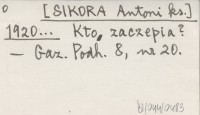 [SIKORA Antoni ks.]
1920... Kto zaczepia?
— Gaz. Podh. 8, nr 20.